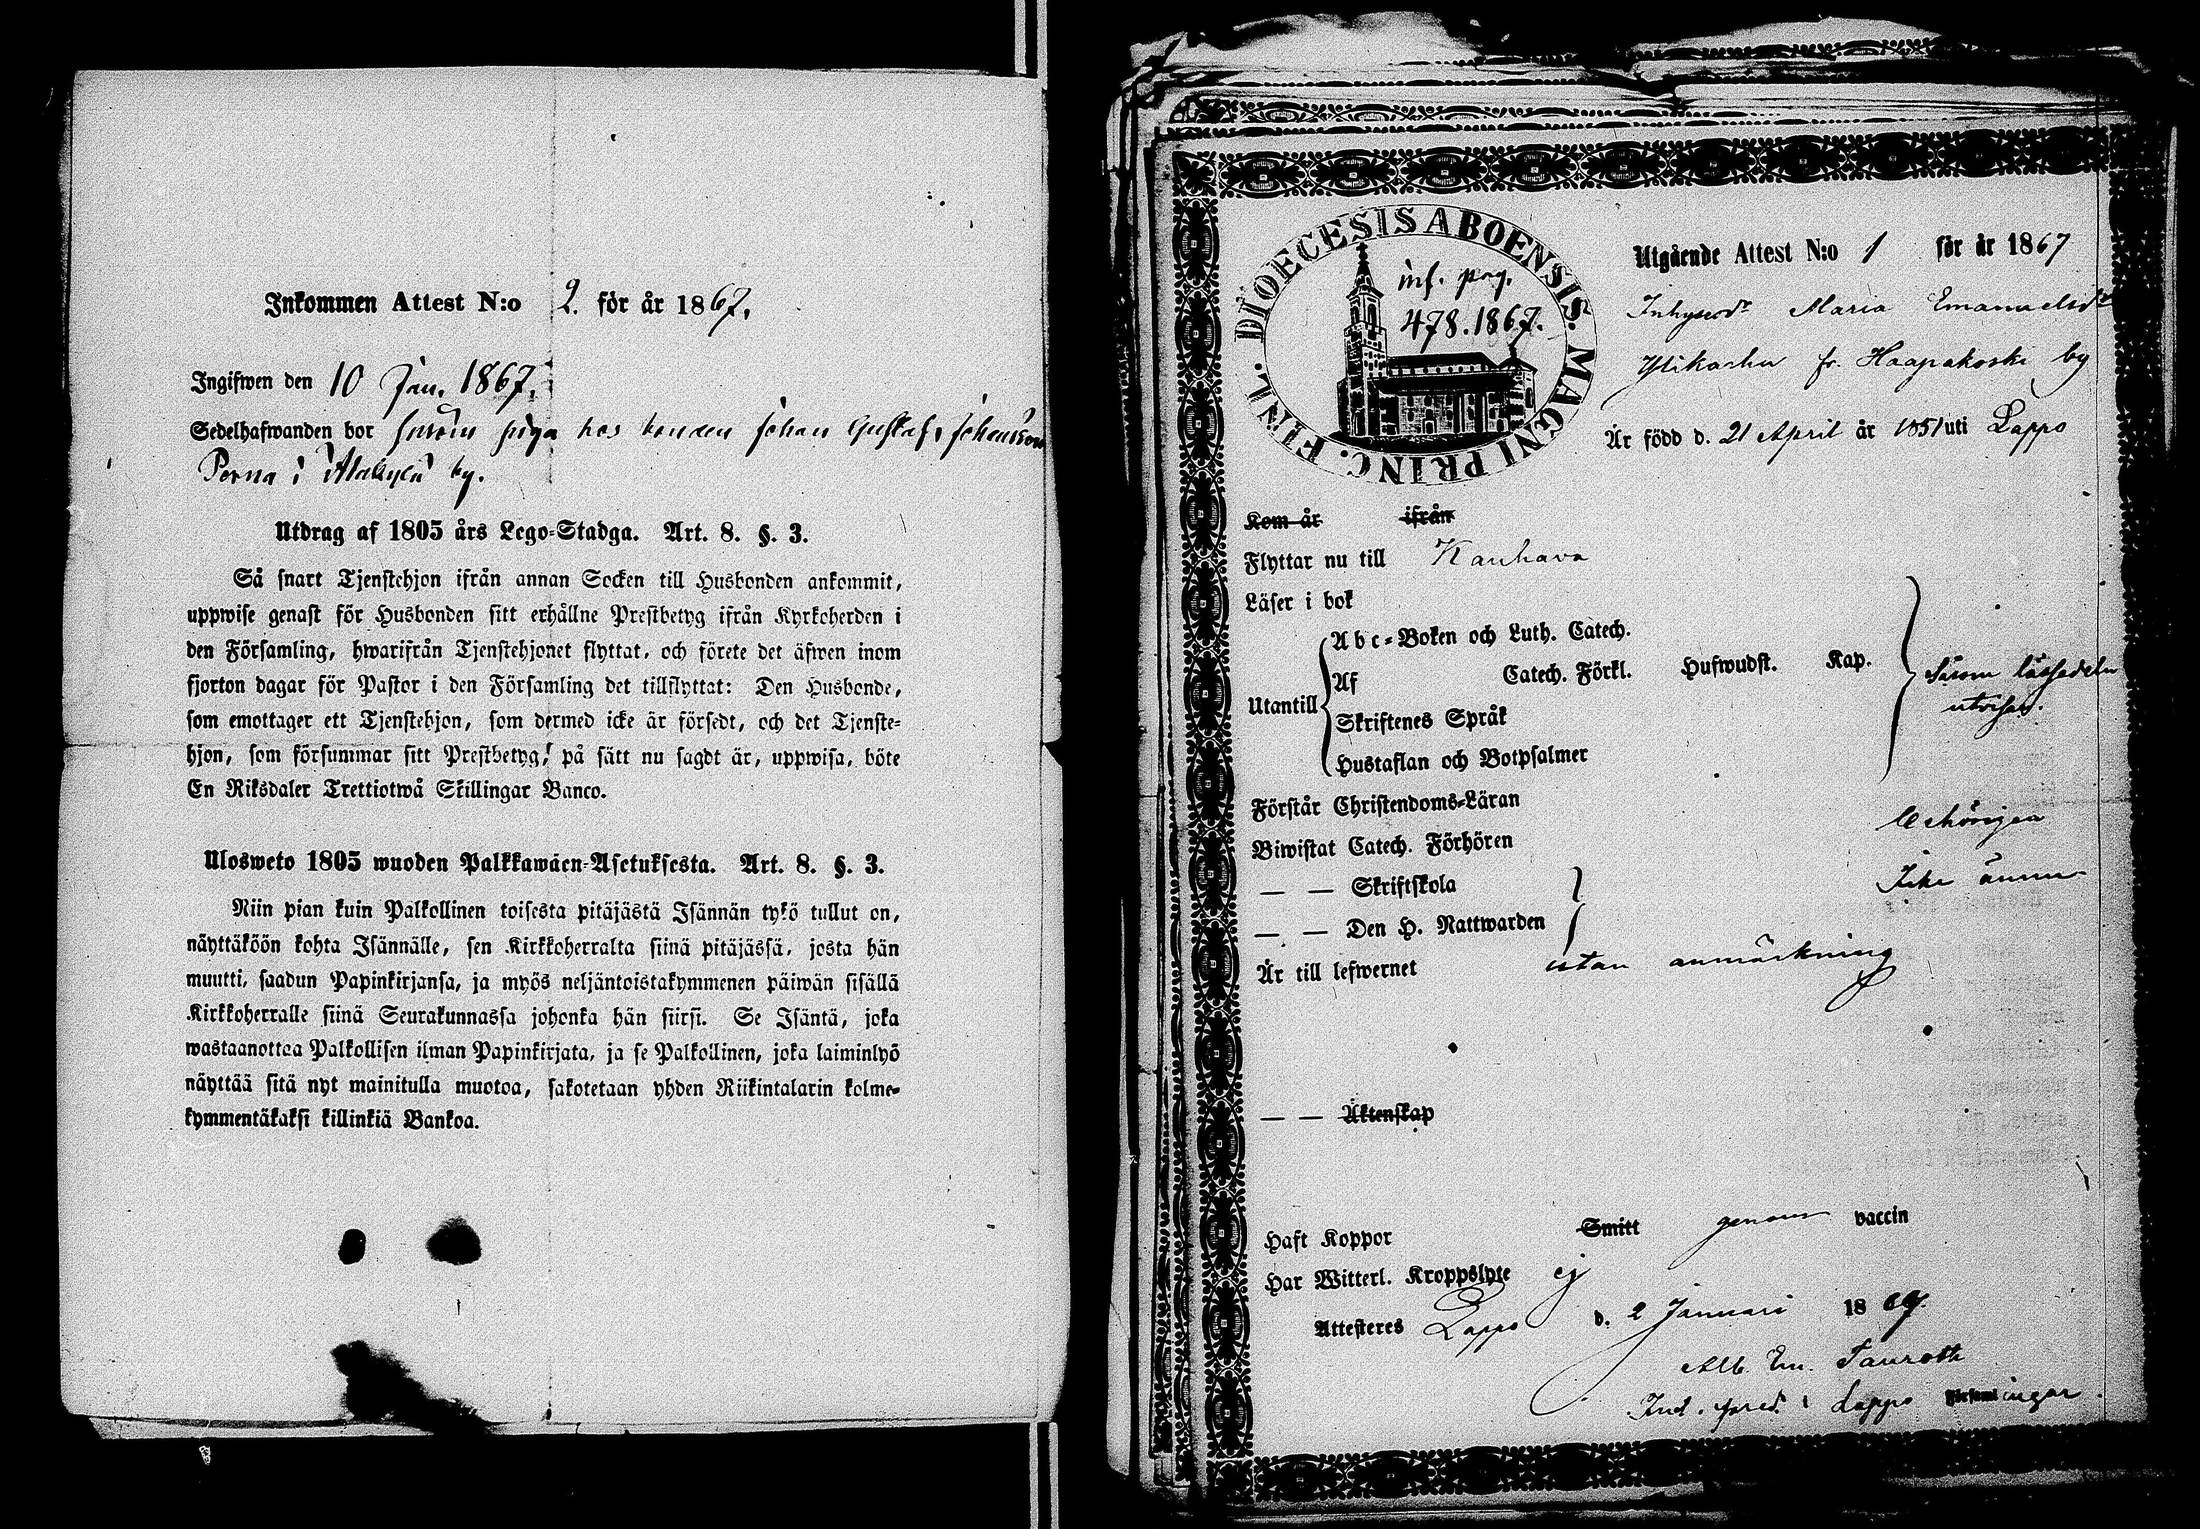 Inkommen Attest N:o 2. för år 1867.
Ingifwen den 10 Jan. 1867.
Sedelhafwanden bor såsom piga hos bonden Johan Gustaf Johansson
Porna i Alakylä by.
Utdrag af 1805 års Lego-Stadga. Art. 8. §. 3.
Så snart Tjenstehjon ifrån annan Socken till Husbonden ankommit,
uppwise genast för Husbonden sitt erhållne Prestbetyg ifrån Kyrkoherden i
den Församling, hwarifrån Tjenstehjonet flyttat, och förete det äfwen inom
fjorton dagar för Pastor i den Församling det tillflyttat: Den Husbonde,
som emottager ett Tjenstehjon, som dermed icke är försedt, och det Tjenste-
hjon, som försummar sitt Prestbetyg, på sätt nu sagdt är, uppwisa, böte
En Riksdaler Trettiotwå Skillingar Banco.
Ulosweto 1805 wuoden Palkkawäen-Asetuksesta. Art. 8. §. 3.
Niin pian kuin Palkollinen toisesta pitäjästä Isännän tykö tullut on,
näyttäköön kohta Isännälle, sen Kirkkoherralta siinä pitäjässä, josta hän
muutti, saadun Papinkirjansa, ja myös neljäntoistakymmenen päiwän sisällä
Kirkkoherralle siinä Seurakunnassa johonka hän siirsi. Se Isäntä, joka
wastaanottaa Palkollisen ilman Papinkirjata, ja se Palkollinen, joka laiminlyö
näyttää sitä nyt mainitulla muotoa, sakotetaan yhden Riikintalarin kolme-
kymmentäkaksi killinkiä Bankoa.
DIOECESIS ABOENSIS. MAGNI PRINC. FINL.
inf. pag.
478.1867.
Utgående Attest N:o 1 för år 1867
Inhysesdr Maria Emanuelsdr
Ylikarhu fr. Haapakoski by
Är född d. 21 April år 1851 uti Lappo
Kom år ifrån
Flyttar nu till Kauhava
Läser i bok
Utantill
Abc-Boken och Luth. Catech.
Af Catech. Förkl. Hufwudst. Kap.
Skriftenes Språk
Hustaflan och Botpsalmer
Såsom läsesedeln
utvisar.
Förstår Christendoms-Läran
Behörigen
Biwistat Catech. Förhören
— — Skriftskola
Icke ännu
— — Den H. Nattwarden
Är till lefwernet utan anmärkning
— — Äktenskap
Haft Koppor Smitt genom vaccin
Har Witterl. Kroppslyte ej
Attesteres Lappo d. 2 Januari 1867.
Alb. Em. Tauroth
i Lappo Församlingar.